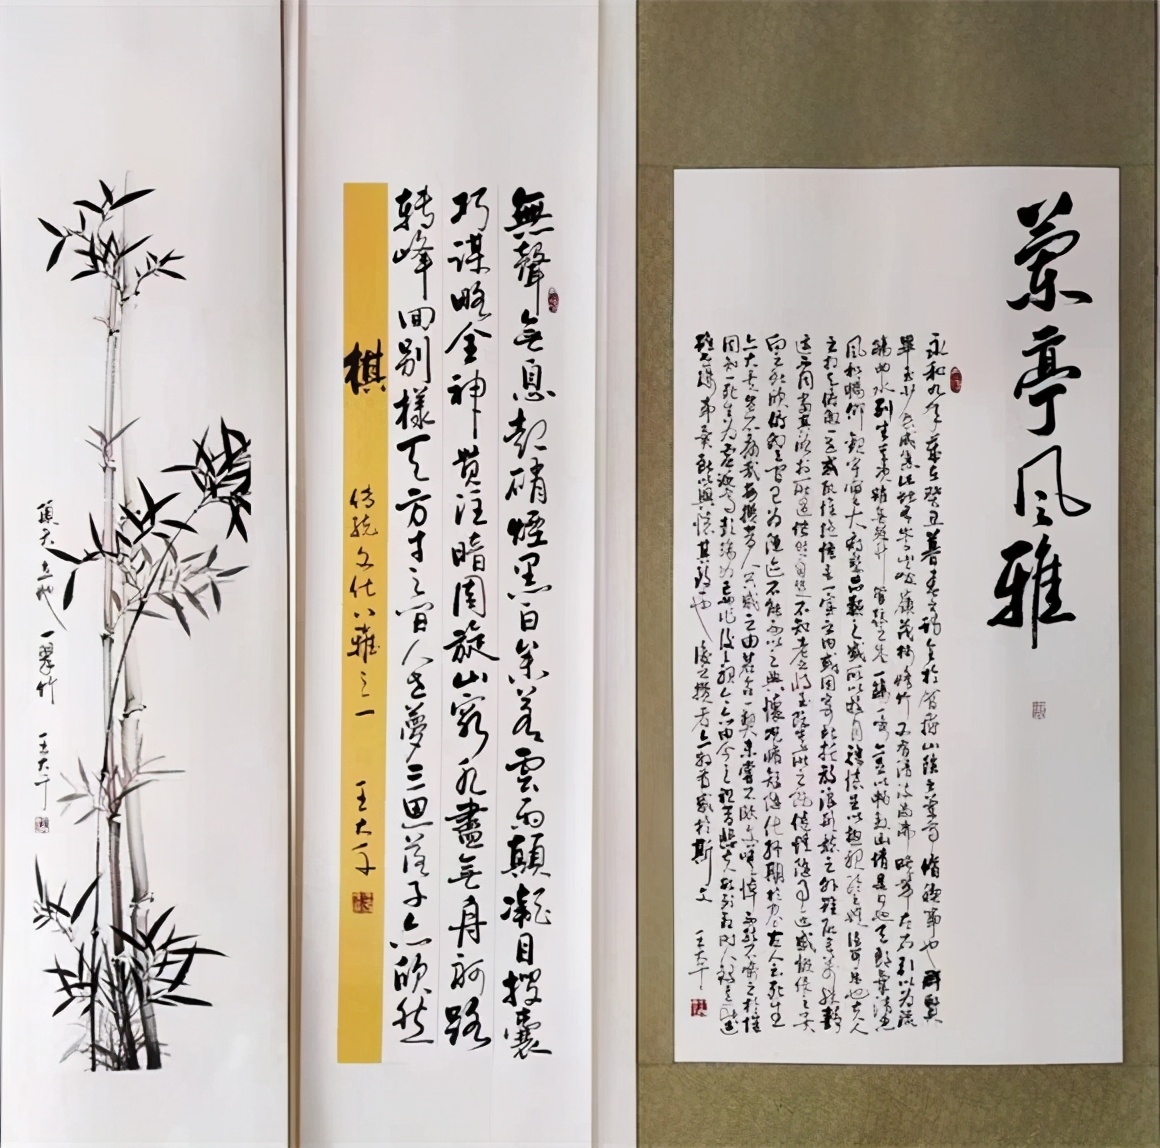 蘭亭风雅
永和九年歲在癸丑暮春之初會於會稽山陰之蘭亭脩禊事也群賢
畢至少長咸集此地有崇山峻嶺茂林脩竹又有清流激湍映帶左右引以為流
觴曲水列坐其次雖無絲竹管絃之盛一觴一詠亦足以暢敘幽情是日也天朗氣清惠
風和暢仰觀宇宙之大俯察品類之盛所以遊目騁懷足以極視聽之娛信可樂也夫人
之相與俯仰一世或取諸懷抱悟言一室之內或因寄所託放浪形骸之外雖趣舍萬殊靜
躁不同當其欣於所遇暫得於己快然自足不知老之將至及其所之既倦情隨事遷感慨係之矣
向之所欣俯仰之間已為陳迹不能不以之興懷況脩短隨化終期於盡古人云死生
亦大矣豈不痛哉每攬昔人興感之由若合一契未嘗不臨文嗟悼不能喻之於懷
固知一死生為虛誕齊彭殤為妄作後之視今亦由今之視昔悲夫故列敘時人錄其所述
雖世殊事異所以興懷其致一也後之攬者亦將有感於斯文 王大千
無聲無息起硝煙黑白參差雲雨顛凝目搜囊
巧謀略全神貫注暗周旋山窮水盡無舟舸路
轉峰回別樣天方寸之間人世夢三思落子亦欣然
棋 传统文化八雅之一 王大千
顶天立地一翠竹 王大千